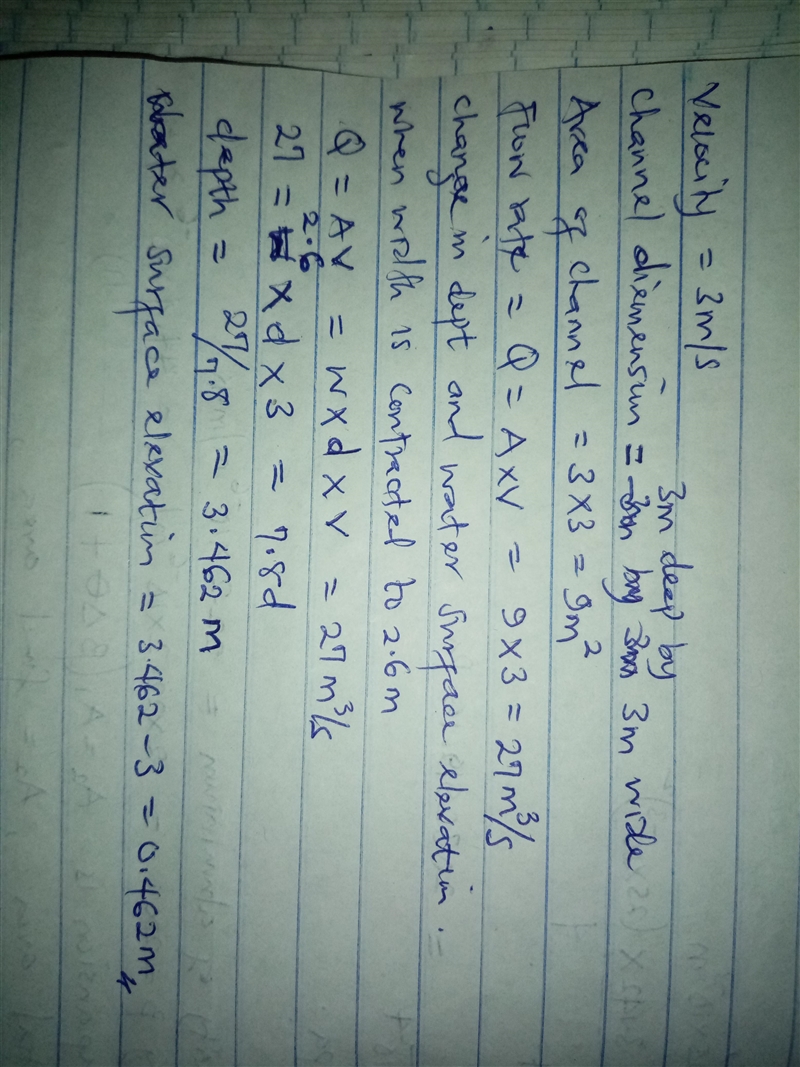 Velocity = 3m/s
3m deep by
Channel diemension = 3m wide
Area of channel = 3x3 = 9m²
Flow rate = Q = AxV = 9x3 = 27m³/s
change in dept and water surface elevation :=
when width is contracted to 2.6m
Q = AV = wxdxV = 27m³/s
27 = 2.6 x d x 3 = 7.8d
depth = 27/7.8 = 3.462 m
water surface elevation = 3.462 - 3 = 0.462m